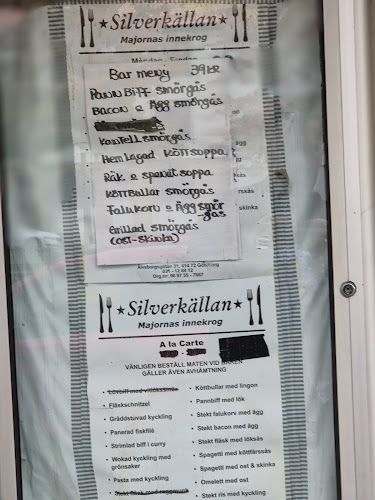 ★Silverkällan★
Majornas innekrog
Bar meny 39 KR
PANNBIFF smörgås
BACON & Ägg smörgås
KOTTELL smörgås
Hemlagad KÖTTSOPPA
Räk & spenat soppa
KÖTTBULLAR smörgås
Falukorv & Ägg smör-
gås
Grillad smörgås
(OST-SKINKA)
ägg
s
rssås
skinka
Älvsborgsgatan 31, 414 72 Göteborg
031 - 12 68 12
★Silverkällan★
Majornas innekrog
A la Carte
VÄNLIGEN BESTÄLL MATEN VID BAREN
GÄLLER ÄVEN AVHÄMTNING
• Lövbiff med vitlökssmör
• Fläskschnitzel
• Gräddstuvad kyckling
• Panerad fiskfilé
• Strimlad biff i curry
• Wokad kyckling med
grönsaker
• Pasta med kyckling
• Stekt fläsk med raggmunk
• Köttbullar med lingon
• Pannbiff med lök
• Stekt falukorv med ägg
• Stekt bacon med ägg
• Stekt fläsk med löksås
• Spagetti med köttfärssås
• Spagetti med ost & skinka
• Omelett med ost
• Stekt ris med kyckling